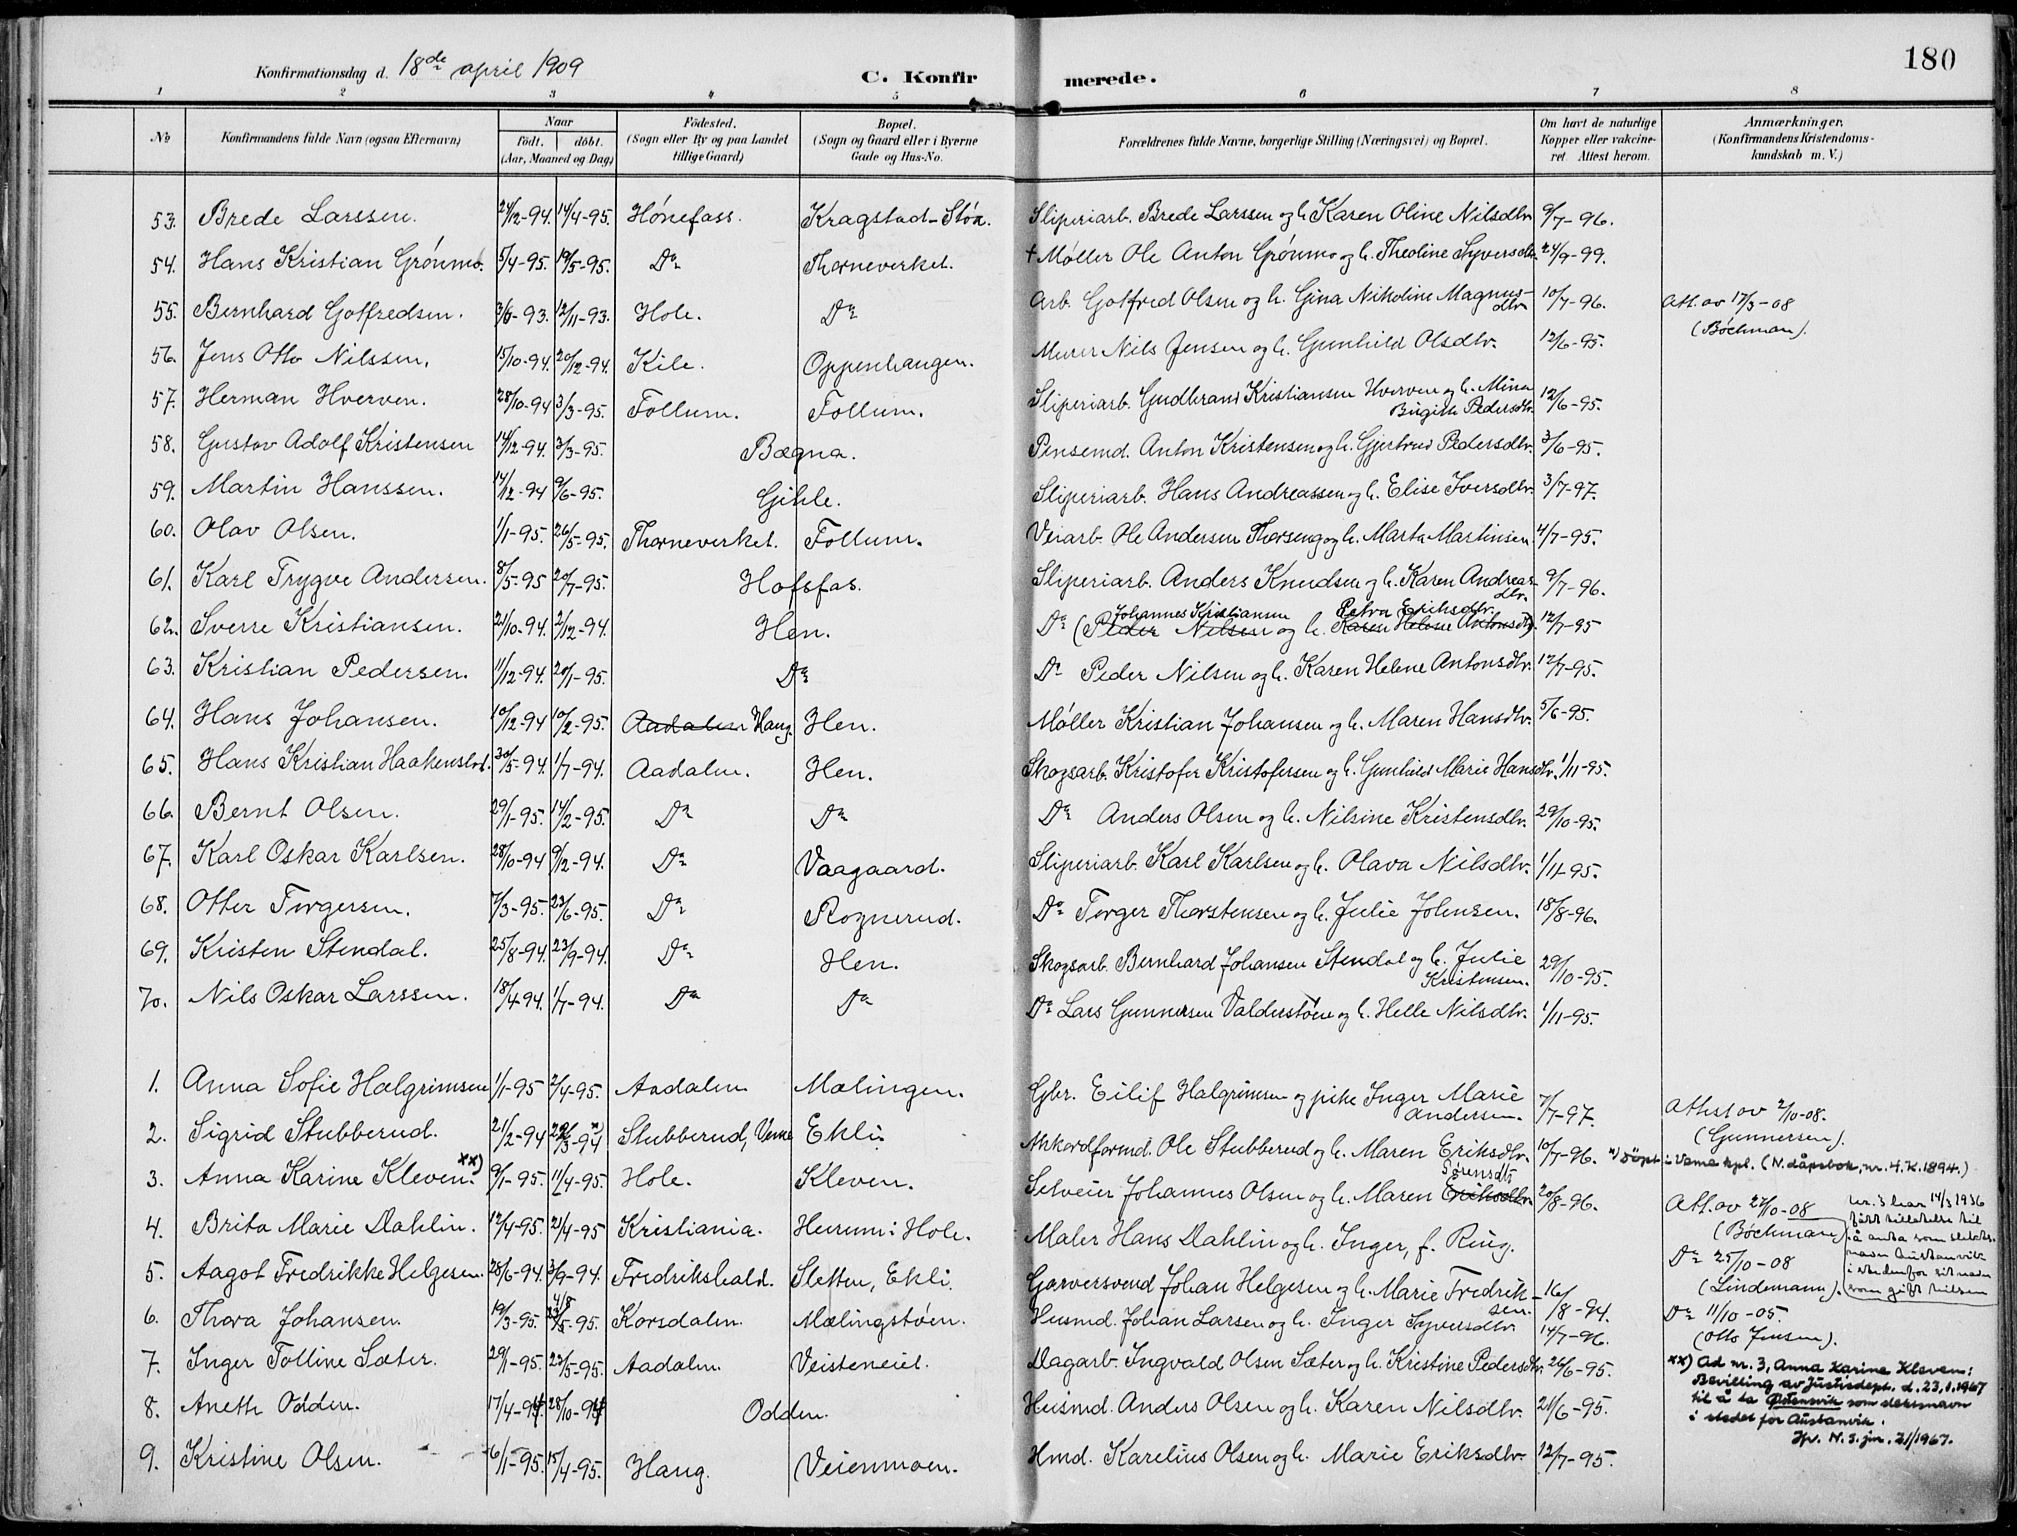 180
Konfirmationsdag d. 18de april 1909
C. Konfirmerede.
1 2 3 4 5 6 7 8
No Konfirmandens fulde Navn (ogsaa Efternavn) Naar født. døbt. (Aar, Maaned og Dag) Fødested. (Sogn eller By og paa Landet tillige Gaard) Bopæl. (Sogn og Gaard eller i Byerne Gade og Hus-No. Forældrenes fulde Navne, borgerlige Stilling (Næringsvei) og Bopæl. Om havt de naturlige Kopper eller vakcineret. Attest herom. Anmærkninger, (Konfirmandens Kristendomskundskab m. V.)
53. Brede Larssen. 24/12-94. 14/4-95. Hønefoss. Kragstad-Støa. Sliperiarb. Brede Larssen og h. Karen Oline Nilsdtr. 9/7-96.
54. Hans Kristian Grønmo. 5/4-95. 19/5-95. Do + Møller Ole Anton Grønmo og h. Theoline Syversdtr. 24/9-99.
Thorneverket.
55. Bernhard Gotfredsen. 3/6-93. 12/11-93. Hole. Do Arb. Gotfred Olsen og h. Gina Nikoline Magnusdtr. 10/7-96. Att. av 17/3-08
(Bøckman).
56. Jens Otto Nilssen. 15/10-94. 20/12-94. Kile. Oppenhaugen. Murer Nils Jensen og h. Gunhild Olsdtr. 12/6-95.
57. Herman Hverven. 28/10-94 3/3-95. Follum. Follum. Sliperiarb. Gudbrand Kristiansen Hverven og h. Mina
Birgitte Pedersdtr. 12/6-95.
58. Gustav Adolf Kristensen 14/12-94. 3/3-95. Bægna. Pensemd. Anton Kristensen og h. Gjertrud Pedersdtr. 3/6-95.
59. Martin Hanssen. 14/12-94 9/6-95. Gihle. Sliperiarb. Hans Andreassen og h. Elise Iversdtr. 3/7-97.
60. Olav Olsen. 1/1-95. 26/5-95. Thorneverket. Follum. Veiarb. Ole Andersen Thorseng og h. Marta Martinsen. 4/7-95.
61. Karl Trygve Andersen. 8/5-95 20/7-95. Hofsfos. Sliperiarb. Anders Knudsen og h. Karen Andreasdtr. 9/7-96.
Johannes Kristiansen Petra Eriksdtr.
62. Sverre Kristiansen. 21/10-94. 2/12-94. Hen. Do (Peder Nilsen og h. Karen Helene Antonsdtr). 12/7-95
63. Kristian Pedersen. 11/12-94. 20/1-95. Do Do Peder Nilsen og h. Karen Helene Antonsdtr. 12/7-95.
64. Hans Johansen. 10/12-94 10/2-95. Aadalen Haug. Hen. Møller Kristian Johansen og h. Maren Hansdtr. 5/6-95.
65. Hans Kristian Haakenstad. 30/5-94. 1/7-94. Aadalen. Hen. Skogsarb. Kristofer Kristofersen og h. Gunhild Marie Hansdtr. 1/11-95.
66. Bernt Olsen. 29/1-95. 17/2-95. Do Do Do Anders Olsen og h. Nilsine Kristensdtr. 29/10-95.
67. Karl Oskar Karlsen. 28/10-94 9/12-94. Do Vaagaard. Sliperiarb. Karl Karlsen og h. Olava Nilsdtr. 1/11-95.
68. Otter Torgersen. 7/3-95. 23/6-95. Do Rognerud. Do Torger Thorstensen og h. Julie Johnsen. 18/8-96.
69. Kristen Stendal. 25/8-94. 23/9-94. Do Hen. Skogsarb. Bernhard Johansen Stendal og h. Julie
Kristensen. 29/10-95.
70. Nils Oskar Larssen. 18/4-94. 1/7-94. Do Do Do Lars Gunnersen Valderstøen og h. Helle Nilsdtr. 1/11-95.
1. Anna Sofie Halgrimsen 1/1-95 2/4-95. Aadalen Mælingen. Gbr. Eilif Halgrimsen og pike Inger Marie
Andersen. 7/7-97. Attest av 2/10-08.
(Gunnersen).
2. Sigrid Stubberud. 21/2-94 /3-94 x) Stubberud, Veme Ekli. Akkordformd. Ole Stubberud og h. Maren Eriksdtr. 10/7-96. x) Døpt i Veme kpl. (N. dåpsbok, nr. 4. K. 1894.)
3. Anna Karine Kleven. xx) 9/1-95. 11/4-95. Hole. Kleven. Selveier Johannes Olsen og h. Maren Eriksdtr. Sørensdtr. 20/8-96. Att. av 27/10-08
(Bøckman)
nr. 3 har 14/3 1936
fått tillatelse til
å anta som slektsnavn Austanvik
i stedenfor sit navn
som gift Nilsen
4. Brita Marie Dahlin. 17/4-95. 21/4-95 Kristiania. Herum i Hole. Maler Hans Dahlin og h. Inger, f. Ring. Do 25/10-08
(Lindemann).
5. Aagot Fredrikke Helgesen. 28/6-94. 3/9-94. Fredrikshald. Sletten, Ekli. Garversvend Johan Helgesen og h. Marie Fredriksen. 16/8-94. Do 11/10-05.
(Otto Jensen).
6. Thora Johansen. 19/3-95. 4/8 23/5-95. Korsdalen. Mælingstøen. Husmd. Johan Larsen og h. Inger Syversdtr. 14/7-96.
7. Inger Tolline Sæter. 29/1-95. 23/5-95. Aadalen. Veisteneiet. Dagarb. Ingvald Olsen Sæter og h. Kristine Pedersdtr. 26/6-95.
8. Anette Odden. 17/4-94. 28/10-94 Odden. Husmd. Anders Olsen og h. Karen Nilsdtr. 21/6-95.
9. Kristine Olsen. 6/1-95. 15/4-95. Haug. Veienmoen. Hmd. Karelius Olsen og h. Marie Eriksdtr. 12/7-95.
xx) Ad nr. 3, Anna Karine Kleven:
Bevilling av Justisdept. d. 23.1.1967
til å ta Østensvik som slektsnavn
i stedet for Austanvik.